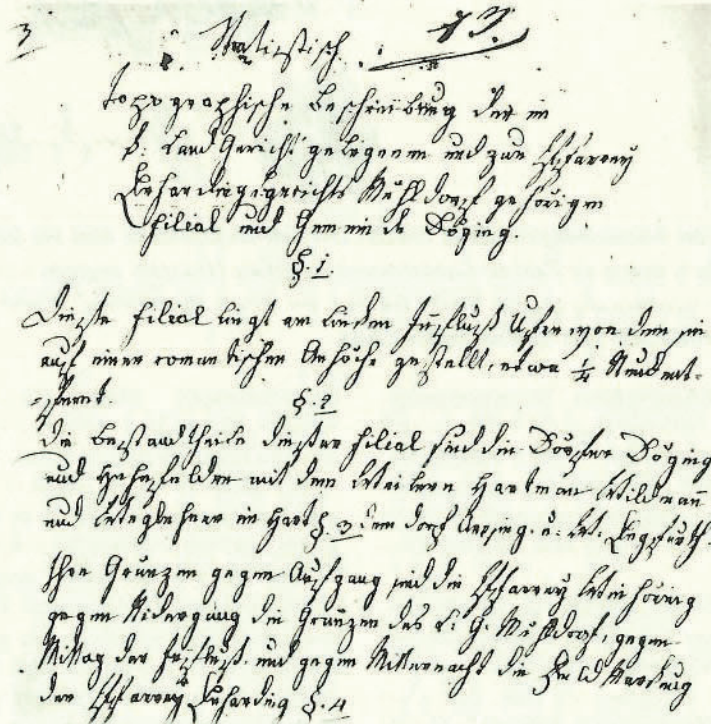 3
Statistisch
topographische Beschreibung der im
k: Land Gericht gelegenen und zur Pfarrey
Erhardinggerichts Mühldorf gehörigen
Filial und Gemeinde Döging.
§. 1.
Dieße Filial liegt am linken Innfluß Ufer von dem sie
auf einer romantischen Anhöhe gestellt, etwa 1/4 Stund ent-
fernt.
§. 2
Die Bestandtheile dießer Filial sind die Dörfer Döging
und Höhfelden mit den Weilern Hartman Wildmann
und im Hart §. 3 dem dorf u. W.
Ihre Gränzen gegen Aufgang sind die Pfarrey
gegen Nidergang die Gränzen des L: G. Mühldorf, gegen
Mittag der Innfluß und gegen Mitternacht die Feld Markung
der Pfarrey Erharding §. 4